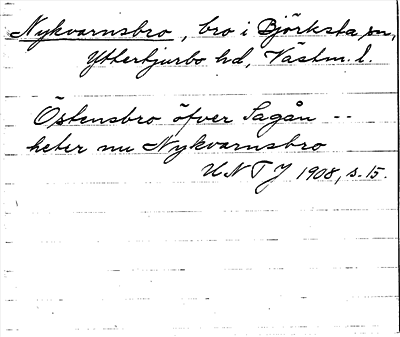 Nykvarnsbro, bro i Björksta sn,
Yttertjurbo hd, Västm. l.
Östensbro öfver Sagån --
heter nu Nykvarnsbro
UNTJ 1908, s. 15.